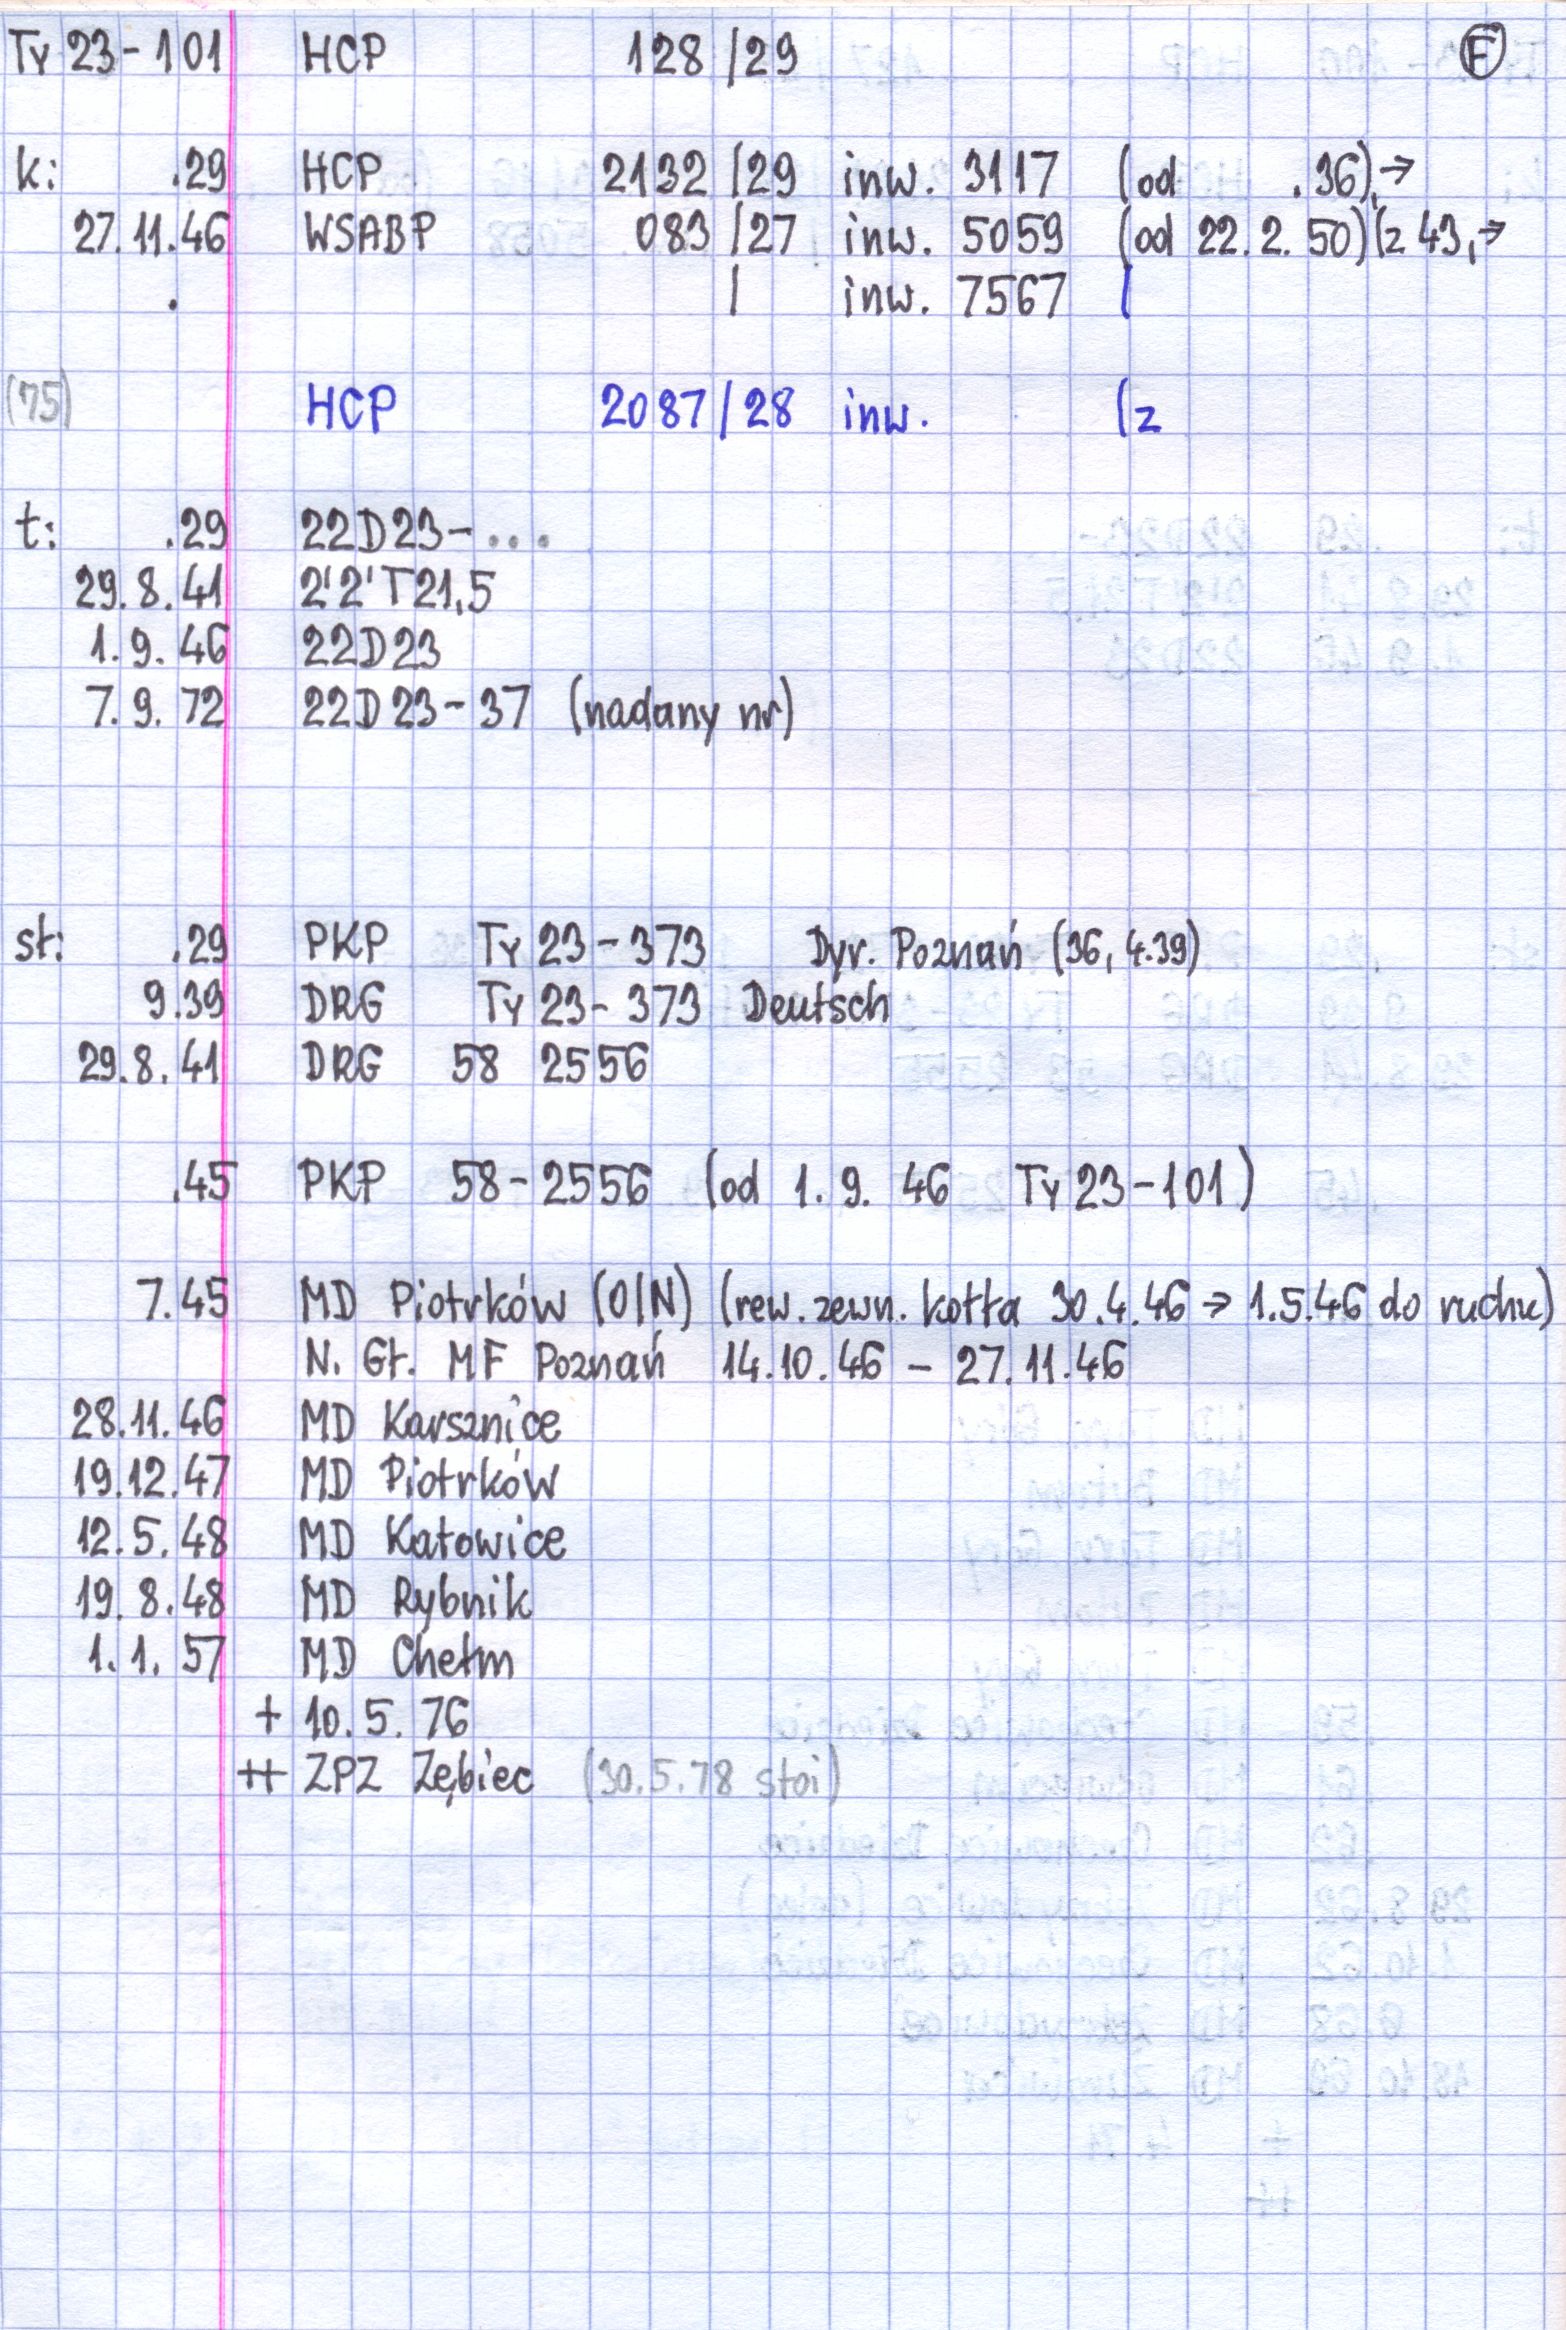 Ty 23-101 HCP 128/29 F
k: .29 HCP 2132/29 inw. 3117 (od .36),→
27.11.46 WSABP 083/27 inw. 5059 (od 22.2.50)(z 43,→
. / inw. 7567 (
(75) HCP 2087/28 inw. (z
t: .29 22D23-...
29.8.41 2'2'T21,5
1.9.46 22D23
7.9.72 22D23-37 (nadany nr)
st: .29 PKP Ty 23-373 Dyr. Poznań (36, 4.39)
9.39 DRG Ty 23-373 Deutsch
29.8.41 DRG 58 2556
.45 PKP 58-2556 (od 1.9.46 Ty 23-101)
7.45 MD Piotrków (OIN) (rew. zewn. kotła 30.4.46 → 1.5.46 do ruchu)
N. Gł. MF Poznań 14.10.46 - 27.11.46
28.11.46 MD Karsznice
19.12.47 MD Piotrków
12.5.48 MD Katowice
19.8.48 MD Rybnik
1.1.57 MD Chełm
+ 10.5.76
++ ZPZ Zębiec (30.5.78 stoi)